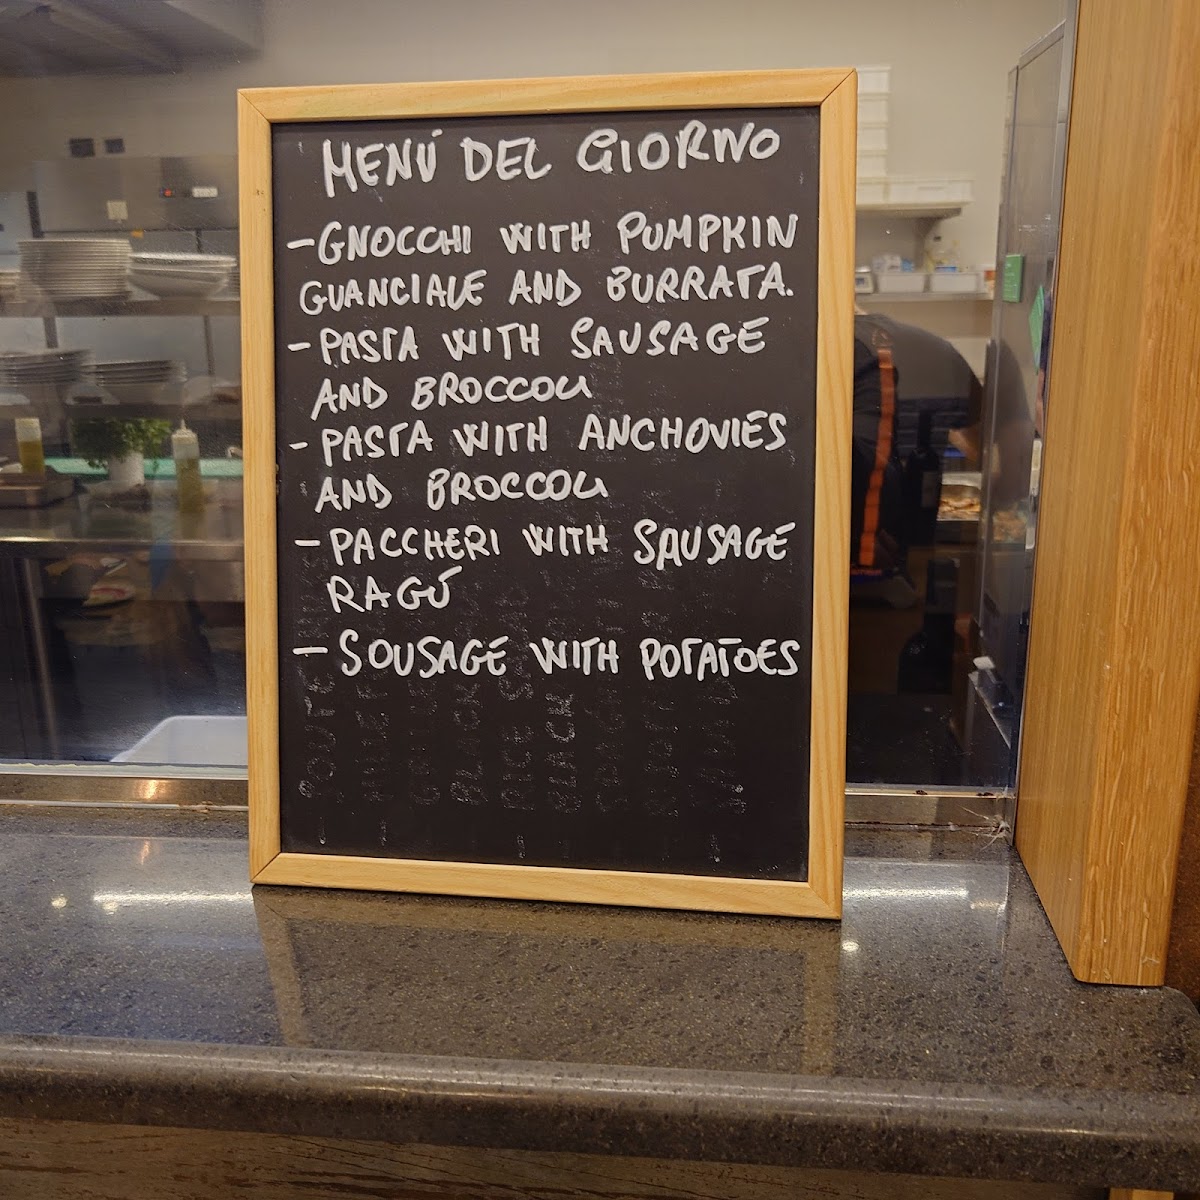 MENÚ DEL GIORNO
- GNOCCHI WITH PUMPKIN
GUANCIALE AND BURRATA.
- PASTA WITH SAUSAGE
AND BROCCOLI
- PASTA WITH ANCHOVIES
AND BROCCOLI
- PACCHERI WITH SAUSAGE
RAGÚ
- SOUSAGE WITH POTATOES
BLACK
BLACK